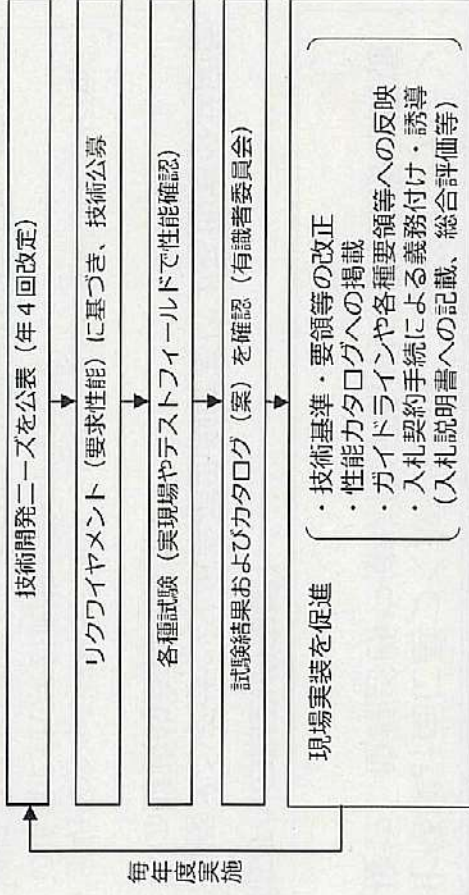 技術開発ニーズを公表（年４回改定）
リクワイヤメント（要求性能）に基づき、技術公募
各種試験（実現場やテストフィールドで性能確認）
試験結果およびカタログ（案）を確認（有識者委員会）
現場実装を促進
・技術基準・要領等の改正
・性能カタログへの掲載
・ガイドラインや各種要領等への反映
・入札契約手続による義務付け・誘導
（入札説明書への記載、総合評価等）
毎年度実施